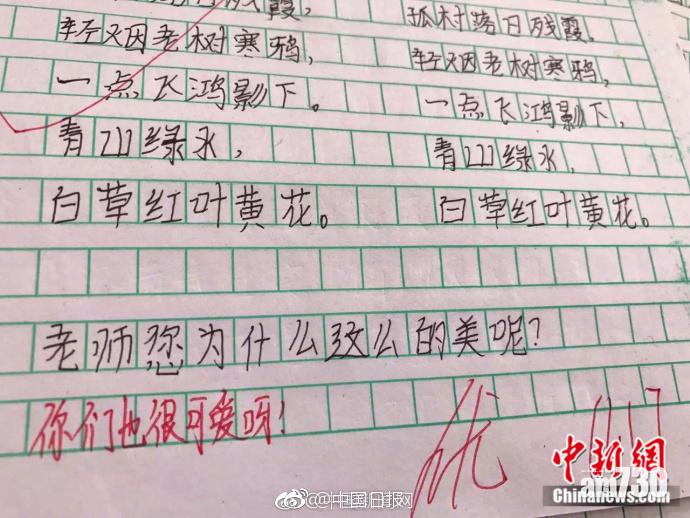 残霞,
轻烟老树寒鸦,
一点飞鸿影下。
青山绿水,
白草红叶黄花。
孤村落日残霞。
轻烟老树寒鸦,
一点飞鸿影下,
青山绿水,
白草红叶黄花。
老师您为什么这么的美呢?
你们也很可爱呀!
优
9.17
中新网
Chinanews.com
am730
@中国日报网